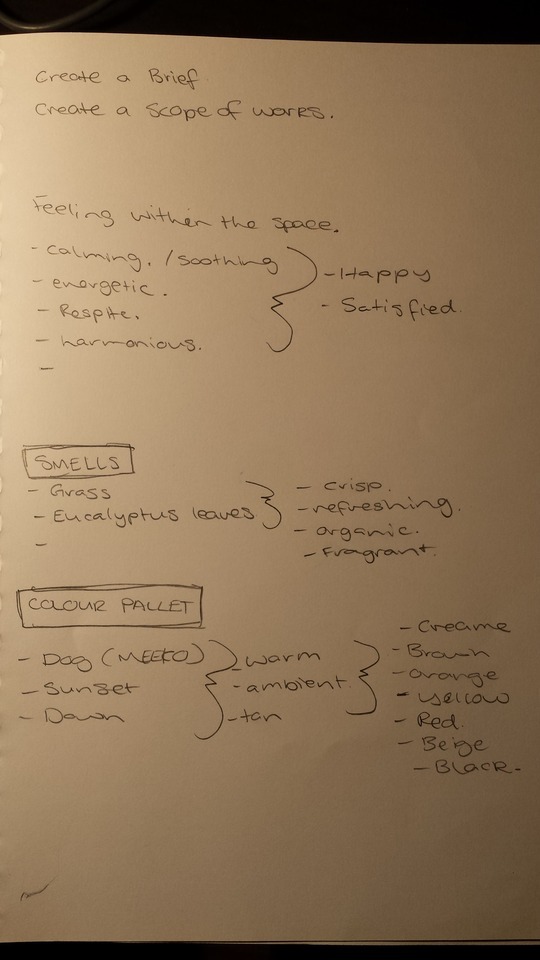 Create a Brief.
Create a Scope of works.
Feeling within the space.
- calming. / soothing
- energetic.
- Respite.
- harmonious.
-
- Happy
- Satisfied.
SMELLS
- Grass
- Eucalyptus leaves
-
- crisp.
- refreshing.
- organic.
- Fragrant.
COLOUR PALLET
- Dog (MEEKO)
- Sunset
- Dawn
- warm
- ambient.
- tan
- Creame
- Brown
- orange
- yellow
- Red.
- Beige
- Black -